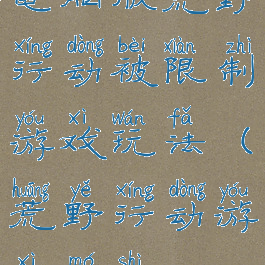 荒野
xíng dòng bèi xiàn zhì
行动被限制
yóu xì wán fǎ
游戏玩法（
huāng yě xíng dòng yóu
荒野行动游
xì mó shì